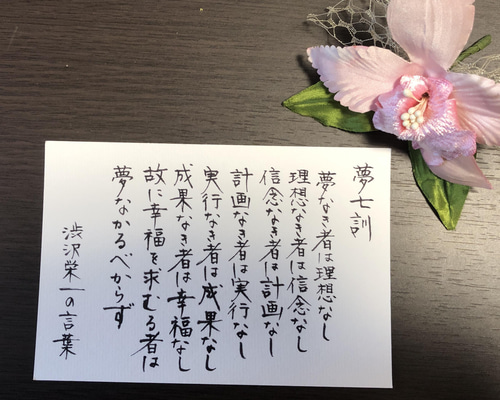 夢七訓
夢なき者は理想なし
理想なき者は信念なし
信念なき者は計画なし
計画なき者は実行なし
実行なき者は成果なし
成果なき者は幸福なし
故に幸福を求むる者は
夢なかるべからず
渋沢栄一の言葉